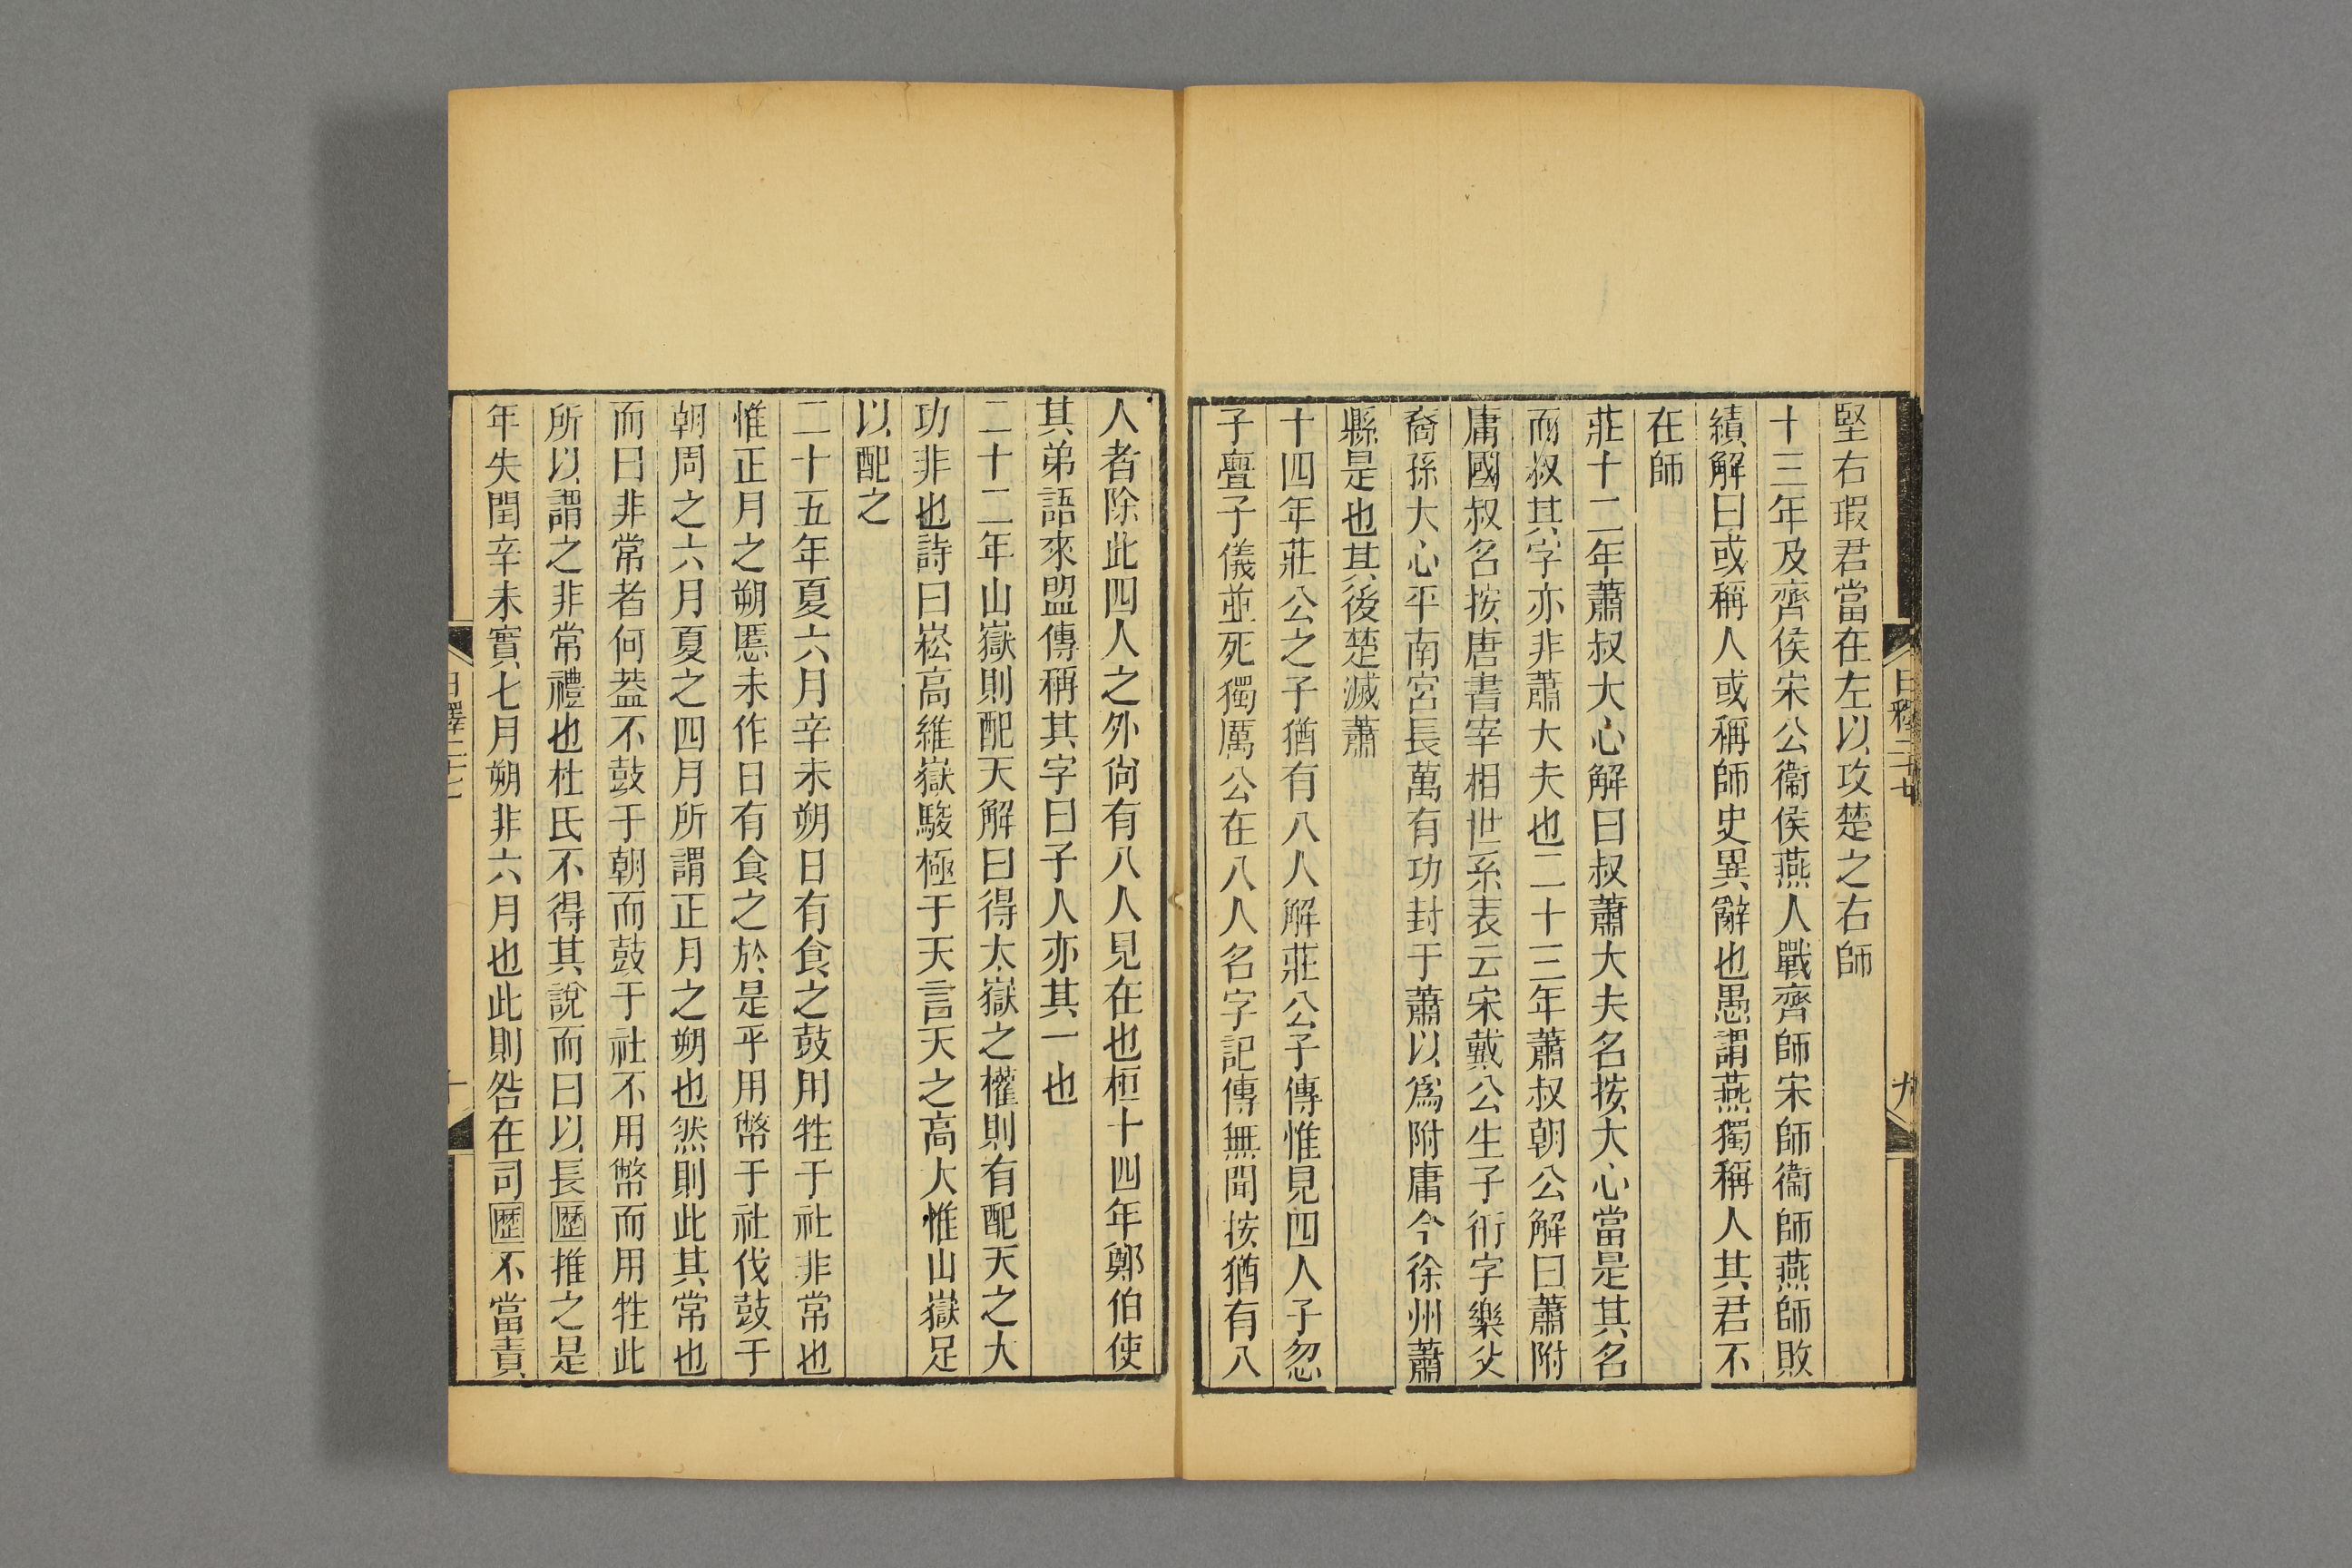 日釋二十七
九
堅右瑕君當在左以攻楚之右師
十三年及齊侯宋公衞侯燕人戰齊師宋師衞師燕師敗
績解曰或稱人或稱師史異辭也愚謂燕獨稱人其君不
在師
莊十二年蕭叔大心解曰叔蕭大夫名按大心當是其名
而叔其字亦非蕭大夫也二十三年蕭叔朝公解曰蕭附
庸國叔名按唐書宰相世系表云宋戴公生子衎字樂父
裔孫大心平南宮長萬有功封于蕭以爲附庸今徐州蕭
縣是也其後楚滅蕭
十四年莊公之子猶有八人解莊公子傳惟見四人子忽
子亹子儀並死獨厲公在八人名字記傳無聞按猶有八
人者除此四人之外尙有八人見在也桓十四年鄭伯使
其弟語來盟傳稱其字曰子人亦其一也
二十二年山嶽則配天解曰得太嶽之權則有配天之大
功非也詩曰崧高維嶽駿極于天言天之高大惟山嶽足
以配之
二十五年夏六月辛未朔日有食之鼓用牲于社非常也
惟正月之朔慝未作日有食之於是乎用幣于社伐鼓于
朝周之六月夏之四月所謂正月之朔也然則此其常也
而曰非常者何葢不鼓于朝而鼓于社不用幣而用牲此
所以謂之非常禮也杜氏不得其說而曰以長歷推之是
年失閏辛未實七月朔非六月也此則咎在司歷不當責
日釋二十七
十